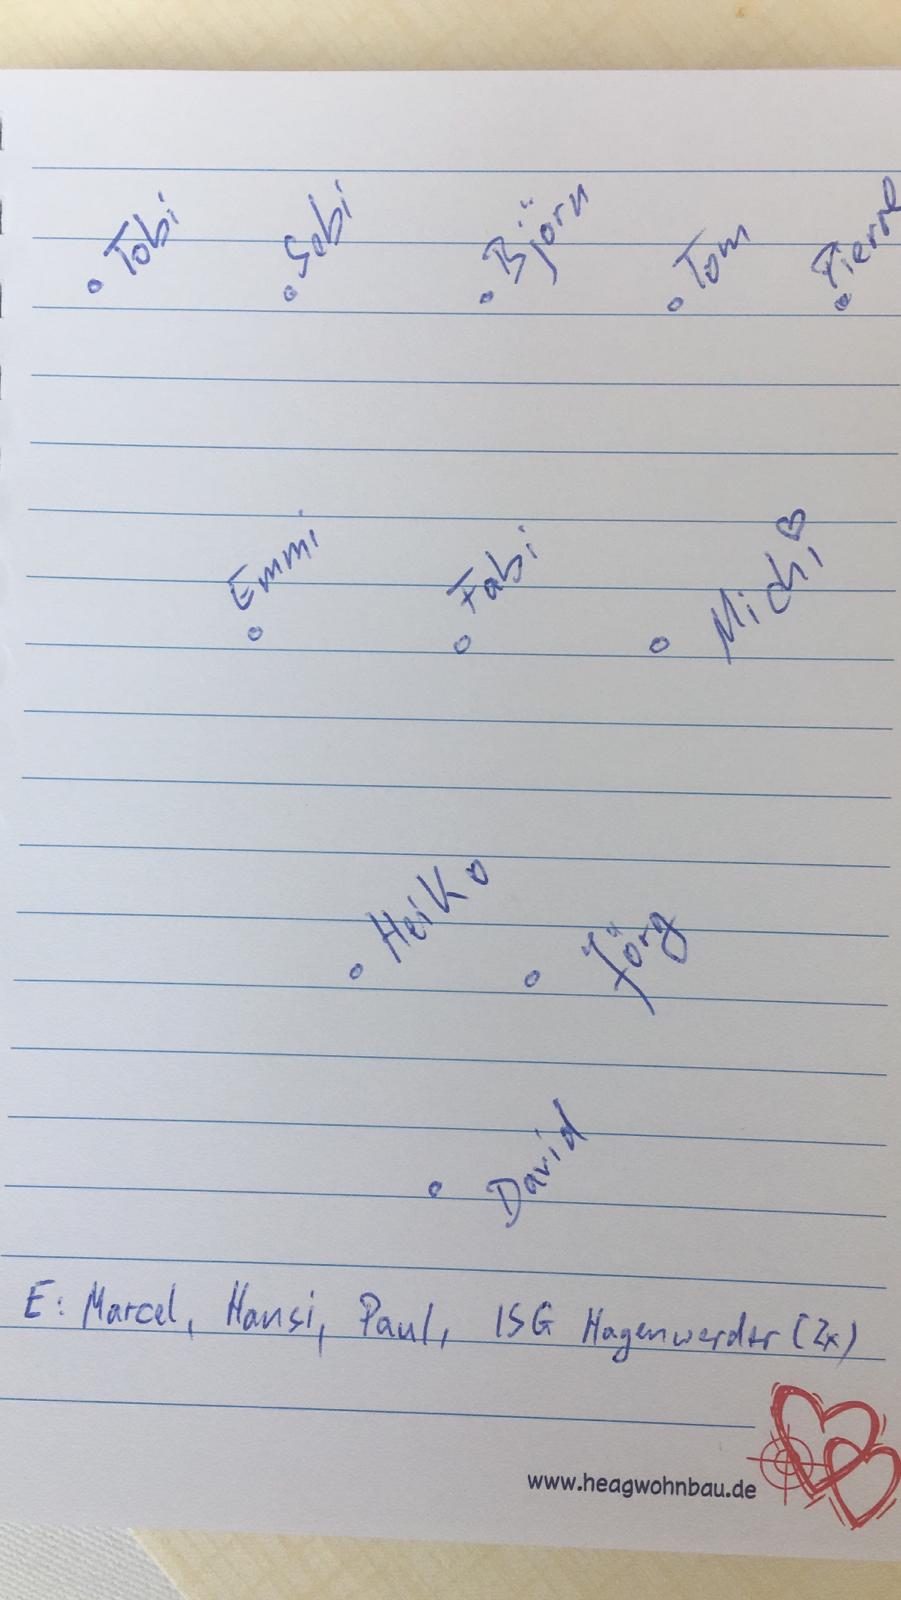 Tobi Sebi Björn Tom Pierre
Emmi Fabi Michi
Heiko Jörg
David
E: Marcel, Hansi, Paul, ISG Hagenwerder (2x)
www.heagwohnbau.de